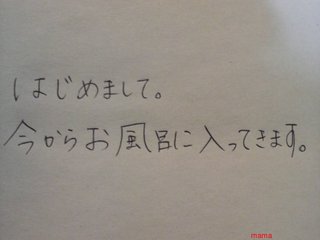 はじめまして。
今からお風呂に入ってきます。
mama